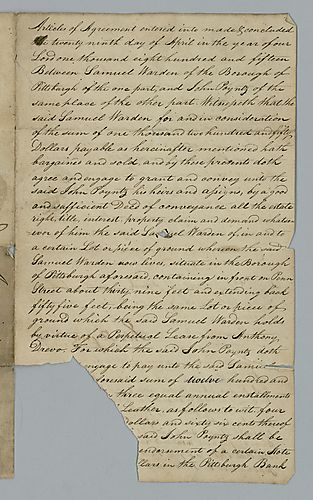 Articles of Agreement entered into made & concluded
the twenty ninth day of April in the year of our
Lord one thousand eight hundred and fifteen
Between Samuel Warden of the Borough of
Pittsburgh of the one part, and John Poyntz of the
same place of the other part. Witnesseth that the
said Samuel Warden for and in consideration
of the sum of one thousand two hundred and fifty
Dollars payable as hereinafter mentioned hath
bargained and sold, and by these presents doth
agree and engage to grant and convey unto the
said John Poyntz his heirs and assigns, by a good
and sufficient Deed of conveyance all the estate
right, title, interest, property, claim and demand whatso
ever of him the said Samuel Warden of in and to
a certain Lot or piece of ground whereon the said
Samuel Warden now lives, situate in the Borough
of Pittsburgh aforesaid, containing in front on Penn
Street about thirty nine feet and extending back
fifty five feet, being the same Lot or piece of
ground which the said Samuel Warden holds
by virtue of a Perpetual Lease from Anthony
Dravo. For which the said John Poyntz doth
engage to pay unto the said Samuel
foresaid sum of twelve hundred and
three equal annual installments
Leather, as follows to wit, four
dollars and sixty six cents thereof
said John Poyntz shall be
endorsement of a certain Note
in the Pittsburgh Bank